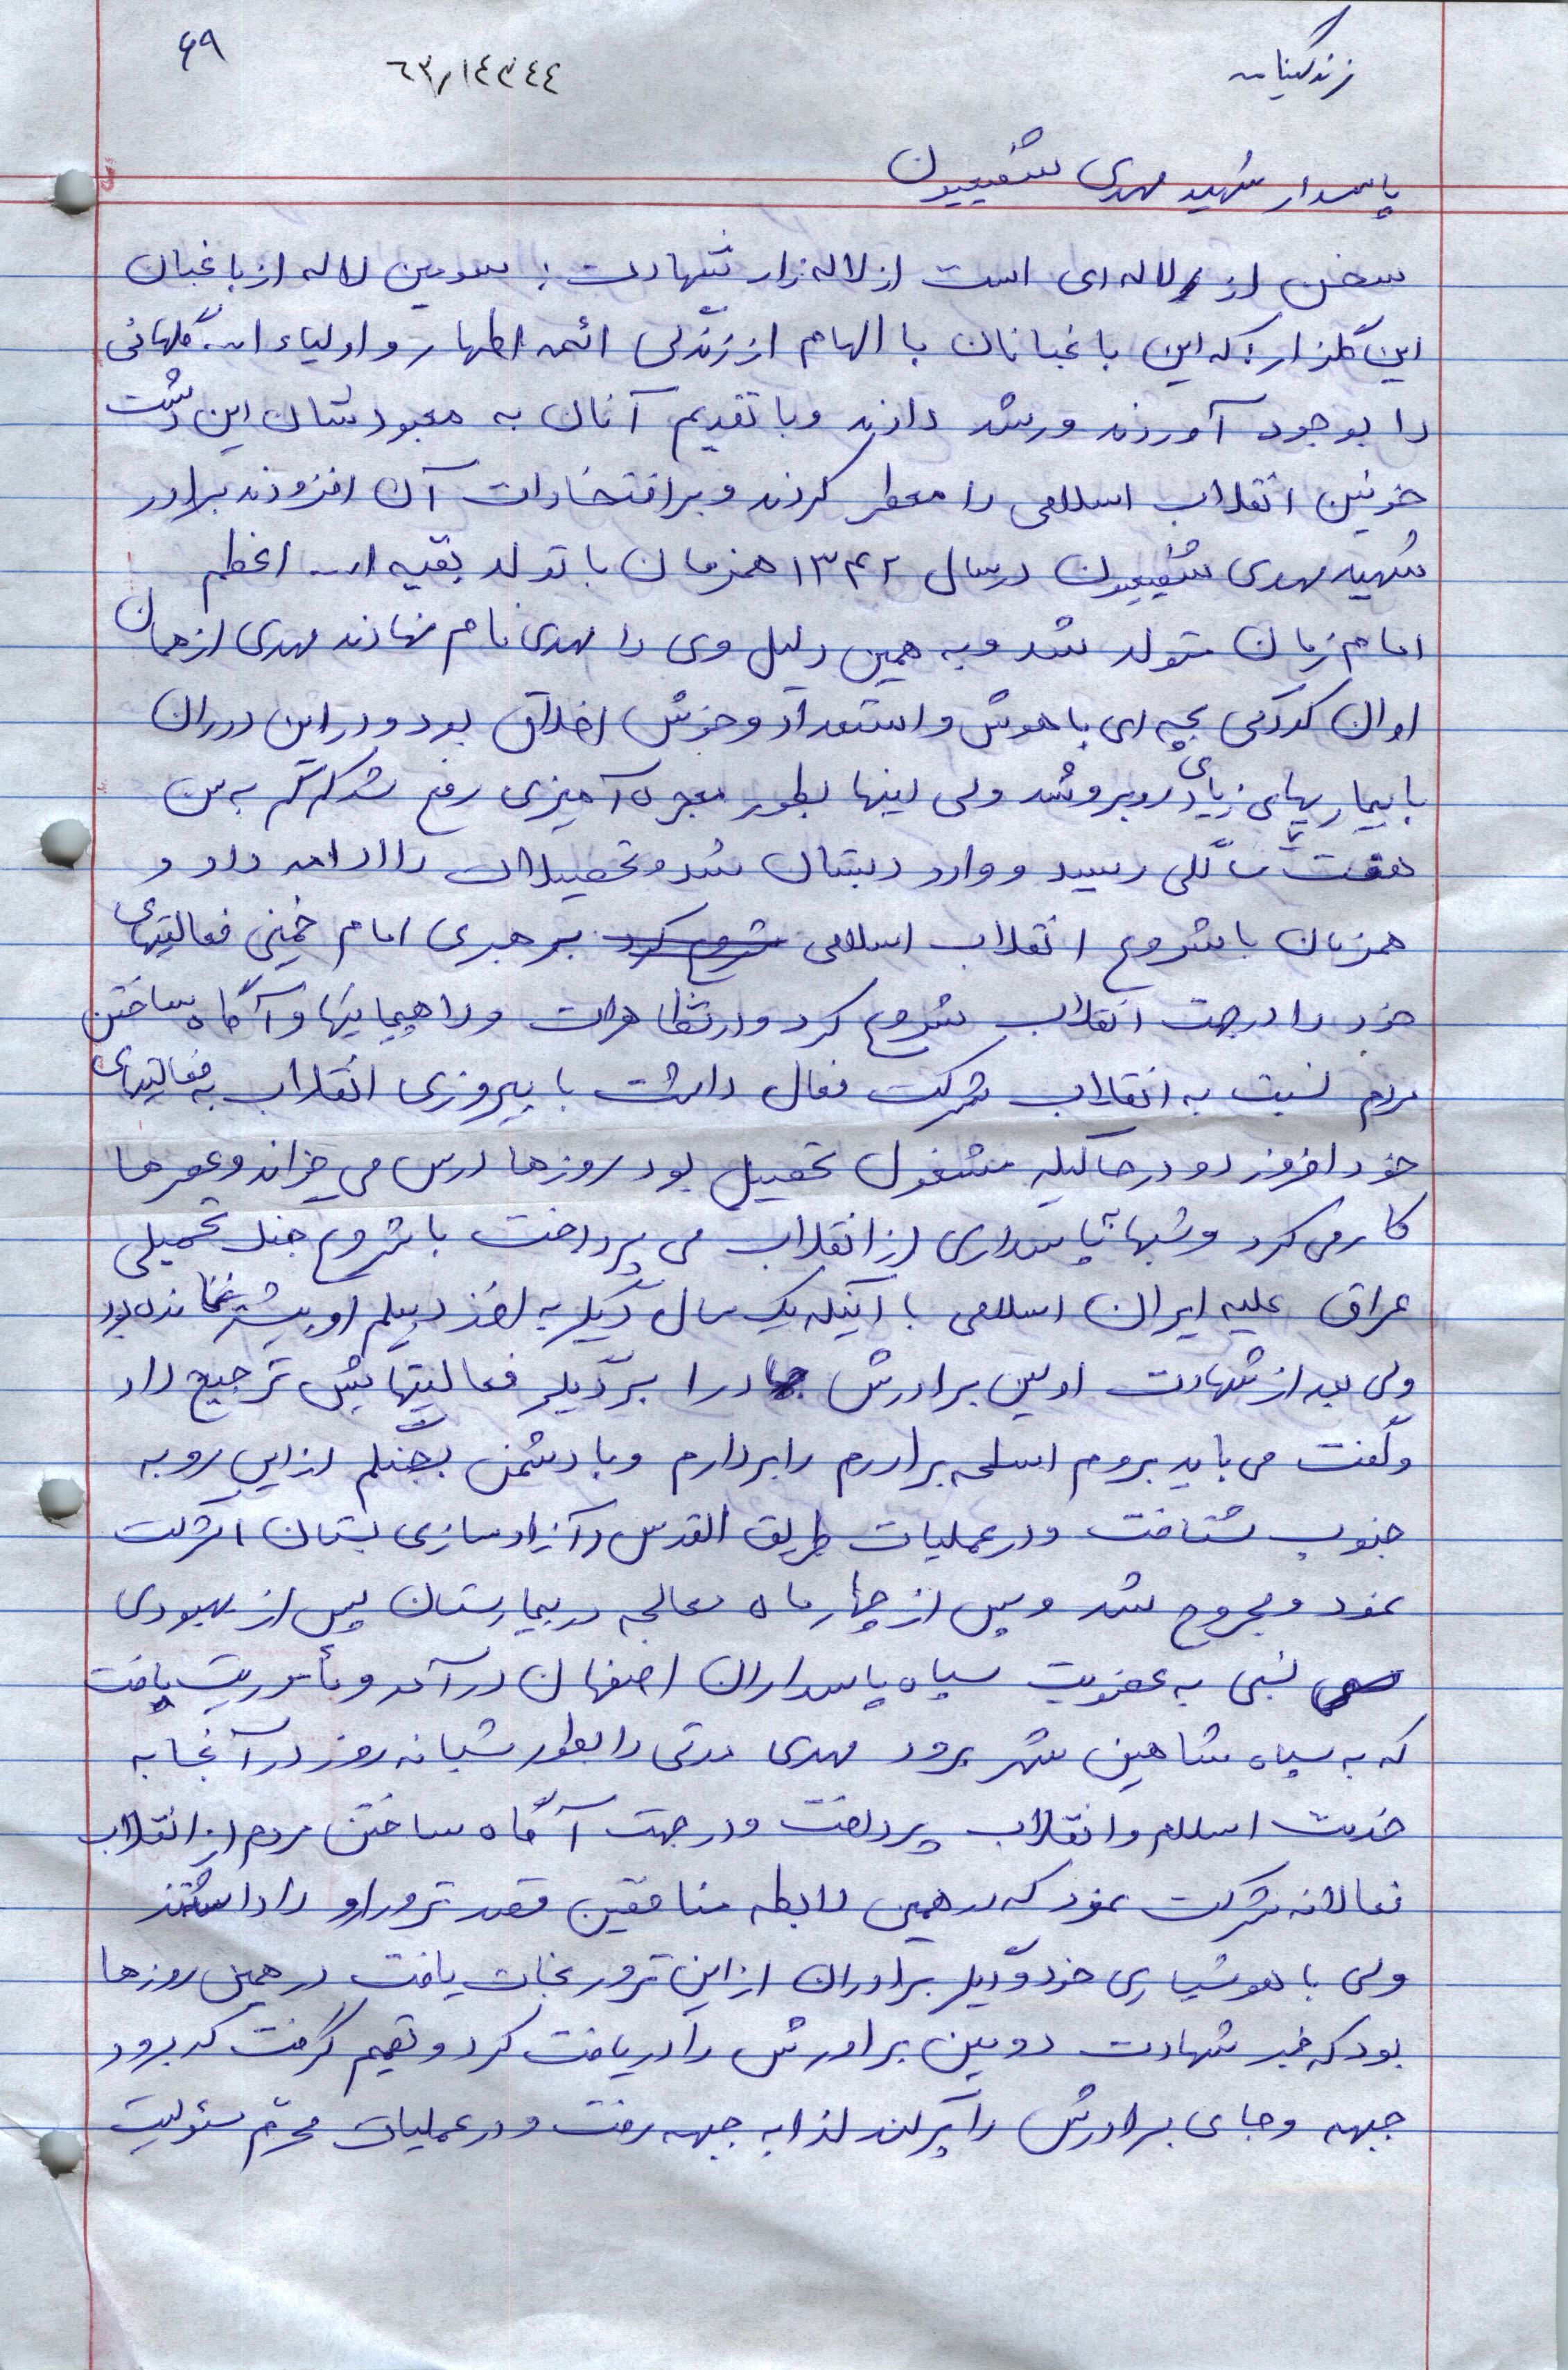 زندگینامه
۶۹
٦٣/١٤٣٤٤
پاسدار شهید مهدی شفیعیون
سخن از لاله ای است از لاله زار شهادت؛ سومین لاله از باغبان
این گلزار، که این باغبانان با الهام از زندگی ائمه اطهار و اولیاء الله گلهائی
را بوجود آوردند و رشد دادند و با تقدیم آنان به معبودشان این دشت
خونین انقلاب اسلامی را معطر کردند و بر افتخارات آن افزودند برادر
شهید مهدی شفیعیون در سال ۱۳۴۲ همزمان با تولد بقیه الله اعظم
امام زمان متولد شد و به همین دلیل وی را مهدی نام نهادند مهدی از همان
اوان کودکی بچه ای با هوش و استعداد و خوش اخلاق بود و در این دوران
با بیماریهای زیادی روبرو شد ولی اینها بطور معجزه آمیزی رفع شد کم کم به سن
هفت سالگی رسید و وارد دبستان شد و تحصیلات را ادامه داد و
همزمان با شروع انقلاب اسلامی برهبری امام خمینی فعالیتهای
خود را در جهت انقلاب شروع کرد و در تظاهرات و راهپیمائیها و آگاه ساختن
مردم نسبت به انقلاب شرکت فعال داشت با پیروزی انقلاب به فعالیتهای
خود افزود و در حالیکه مشغول تحصیل بود روزها درس می خواند و عصرها
کار می کرد و شبها به پاسداری از انقلاب می پرداخت با شروع جنگ تحمیلی
عراق علیه ایران اسلامی با آنیکه یک سال دیگر به اخذ دیپلم او بیشتر نمانده بود
ولی بعد از شهادت اولین برادرش جهاد را بر دیگر فعالیتهایش ترجیح داد
و گفت می باید بروم اسلحه برادرم را بردارم و با دشمن بجنگم از این رو به
جنوب شتافت و در عملیات طریق القدس و آزادسازی بستان شرکت
نمود و مجروح شد و پس از چهار ماه معالجه در بیمارستان پس از بهبودی
نسبی به عضویت سپاه پاسداران اصفهان در آمد و مأموریت یافت
که به سپاه شاهین شهر برود مهدی مدتی را بطور شبانه روز در آنجا به
خدمت اسلام و انقلاب پرداخت و در جهت آگاه ساختن مردم از انقلاب
فعالانه شرکت نمود که در همین رابطه منافقین قصد ترور او را داشتند
ولی با هوشیاری خود و دیگر برادران از این ترور نجات یافت در همین روزها
بود که خبر شهادت دومین برادرش را دریافت کرد و تصمیم گرفت که برود
جبهه و جای برادرش را پر کند لذا به جبهه رفت و در عملیات محرم مسئولیت